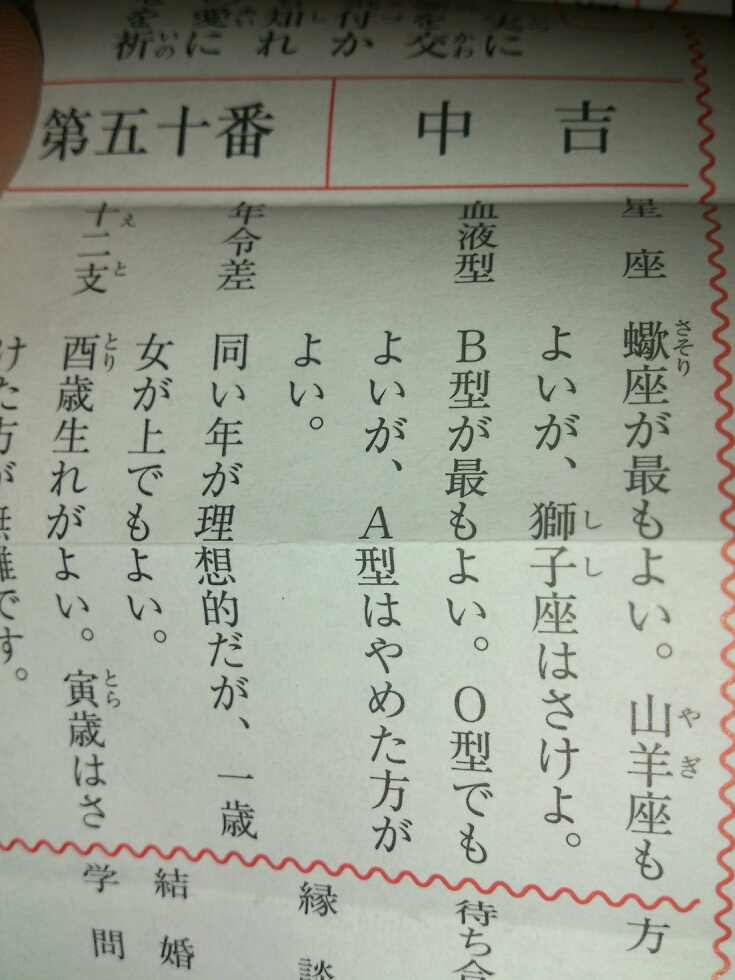 実に
を交
付か
知れ
愛に
を祈
中吉
第五十番
星座
蠍座が最もよい。山羊座も
よいが、獅子座はさけよ。
血液型
B型が最もよい。O型でも
よいが、A型はやめた方が
よい。
年令差
同い年が理想的だが、一歳
女が上でもよい。
十二支
酉歳生れがよい。寅歳はさ
けた方が無難です。
方
待ち合
縁談
結婚
学問